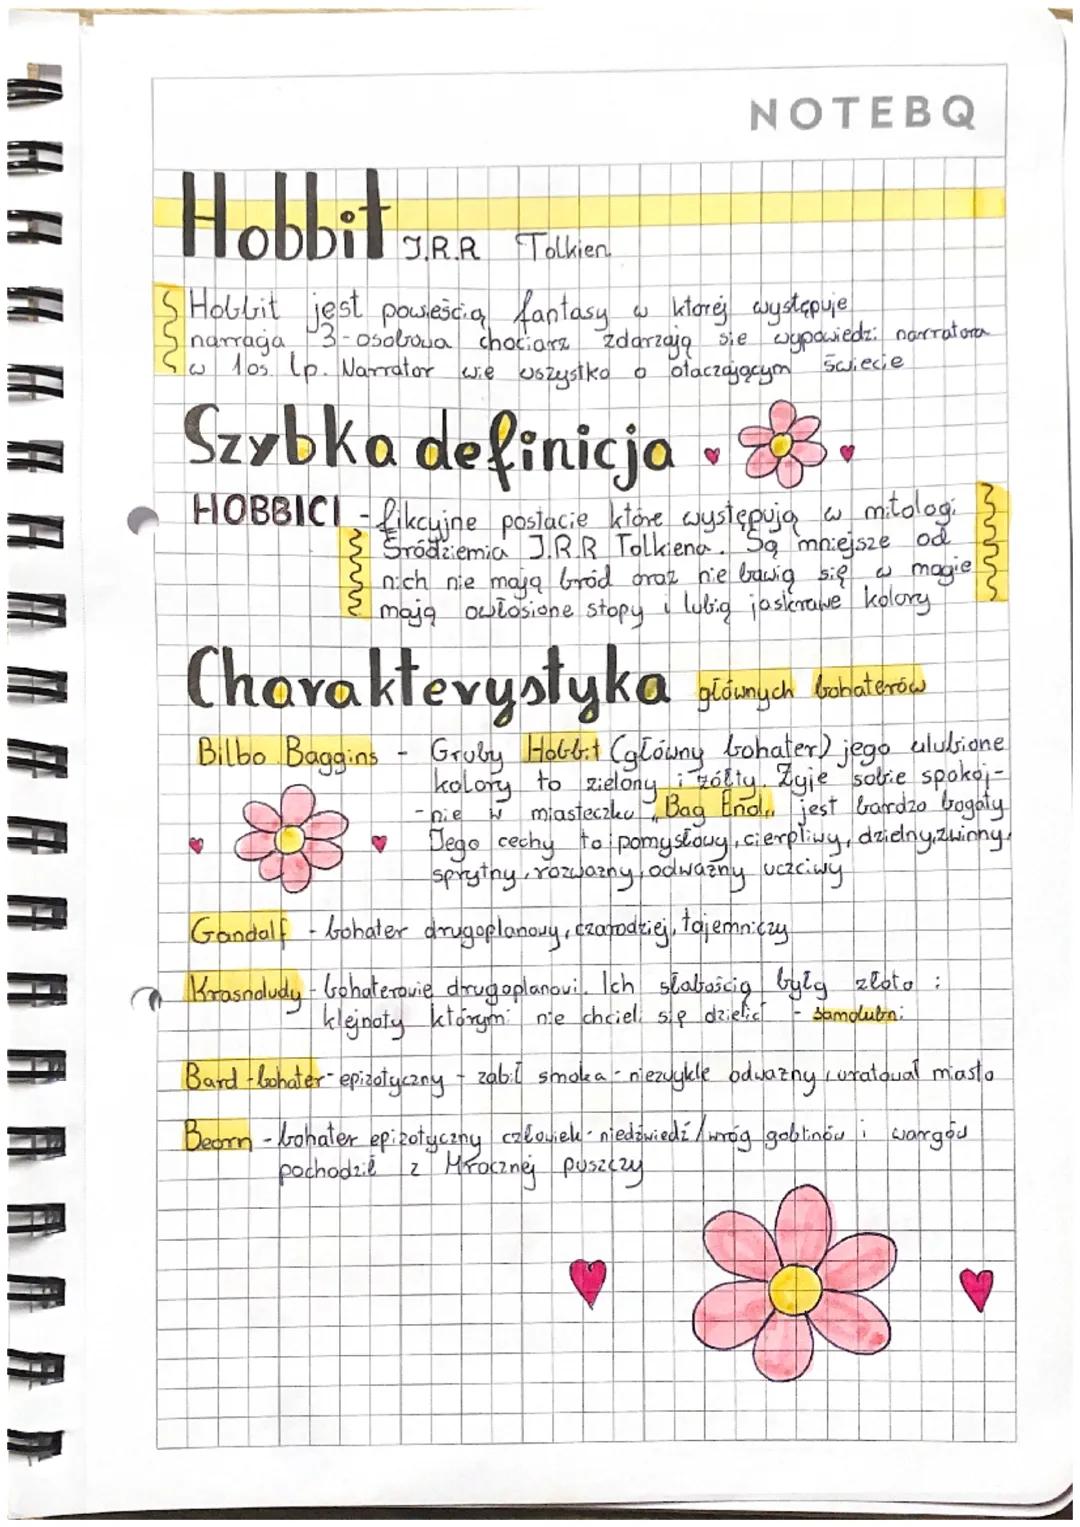 NOTEBQ
Hobbit J.R.R Tolkien
Hobbit jest powieścią fantasy w której występuje
narraga 3-osobowa chociarz zdarzają sie wypowiedzi narratora
w 1os. lp. Narrator wie wszystko o otaczającym świecie
Szybka definicja
HOBBICI - fikcyjne postacie które występują w mitologi
Śródziemia J.R.R Tolkiena. Są mniejsze od
nich nie mają bród oraz nie bawią się w magie
mają owłosione stopy i lubią jaskrawe kolory
Charakterystyka głównych bohaterów
Bilbo Baggins - Gruby Hobbit (główny bohater) jego ulubione
kolory to zielony i żółty. Żyje sobie spokoj-
-nie w miasteczku "Bag End" jest bardzo bogaty
Jego cechy to: pomysłowy, cierpliwy, dzielny, zwinny,
sprytny, rozważny, odważny uczciwy
Gandalf - bohater drugoplanowy, czarodziej, tajemniczy
Krasnoludy - bohaterowie drugoplanowi. Ich słabością były złoto i
klejnoty którymi nie chcieli się dzielić - samolubni
Bard - bohater - epizotyczny - zabił smoka - niezwykle odważny, uratował miasto
Beorn - bohater epizotyczny człowiek - niedźwiedź / wróg goblinów i wargów
pochodził z Mrocznej puszczy